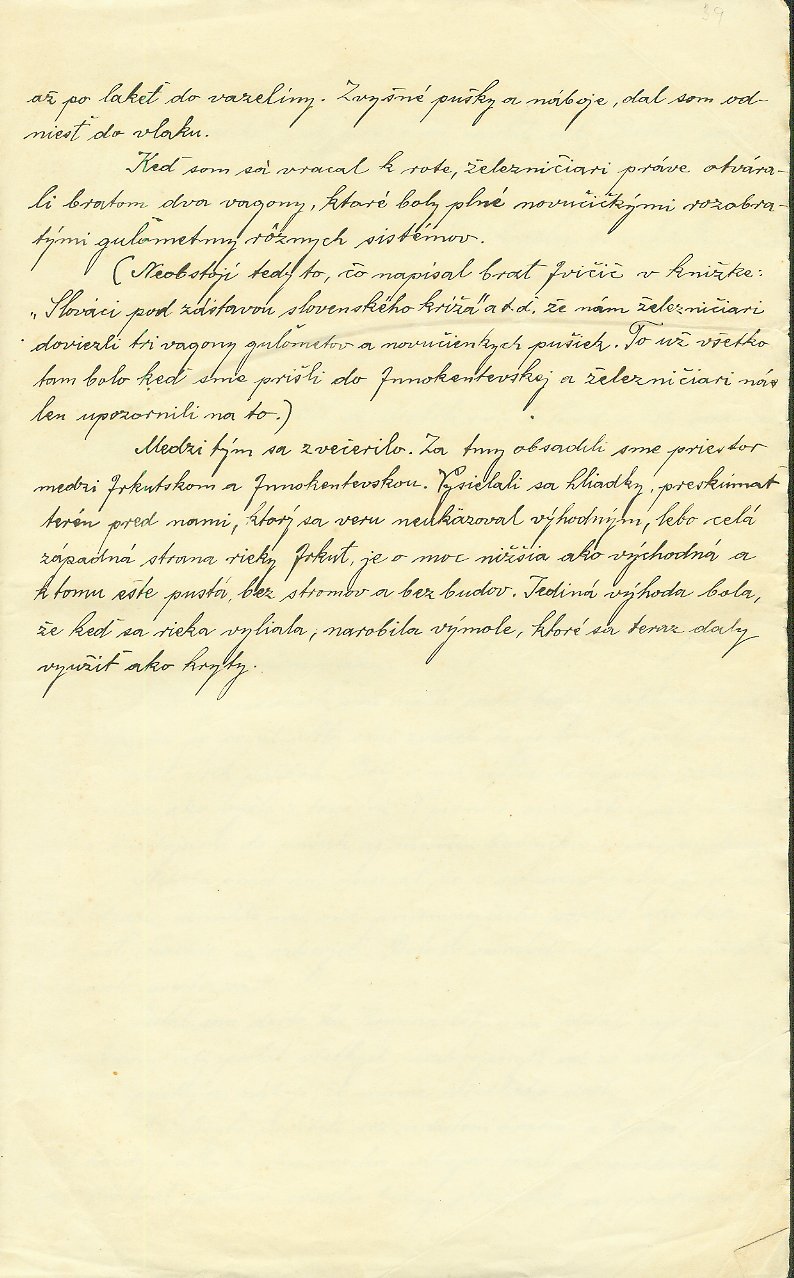 39
až po laketˇ do vazelíny. Zvyšné pušky a náboje, dal som od-
niesť do vlaku.
Keď som sa vracal k rote, železničiari práve otvára-
li bratom dva vagony, ktoré boly plné novučičkými rozobra-
tými guľometmy rôznych sistémov.
(Neobstojí tedy to, čo napísal brat Ivičič v knižke:
„Slováci pod zástavou slovenského kríža" a t. ď. že nám železničiari
doviezli tri vagony guľometov a novučienkych pušiek. To už všetko
tam bolo keď sme prišli do Innokentevskej a železničiari nás
len upozornili na to.)
Medzi tým sa zvečerilo. Za tmy obsadili sme priestor
medzi Irkutskom a Innokentevskou. Vysielali sa hliadky, preskúmať
terén pred nami, ktorý sa veru neukázoval výhodným, lebo celá
západná strana rieky Irkut, je o moc nižšia ako východná a
k tomu ešte pustá, bez stromov a bez budov. Jediná výhoda bola,
že keď sa rieka vyliala, narobila výmole, ktoré sa teraz daly
využiť ako kryty.